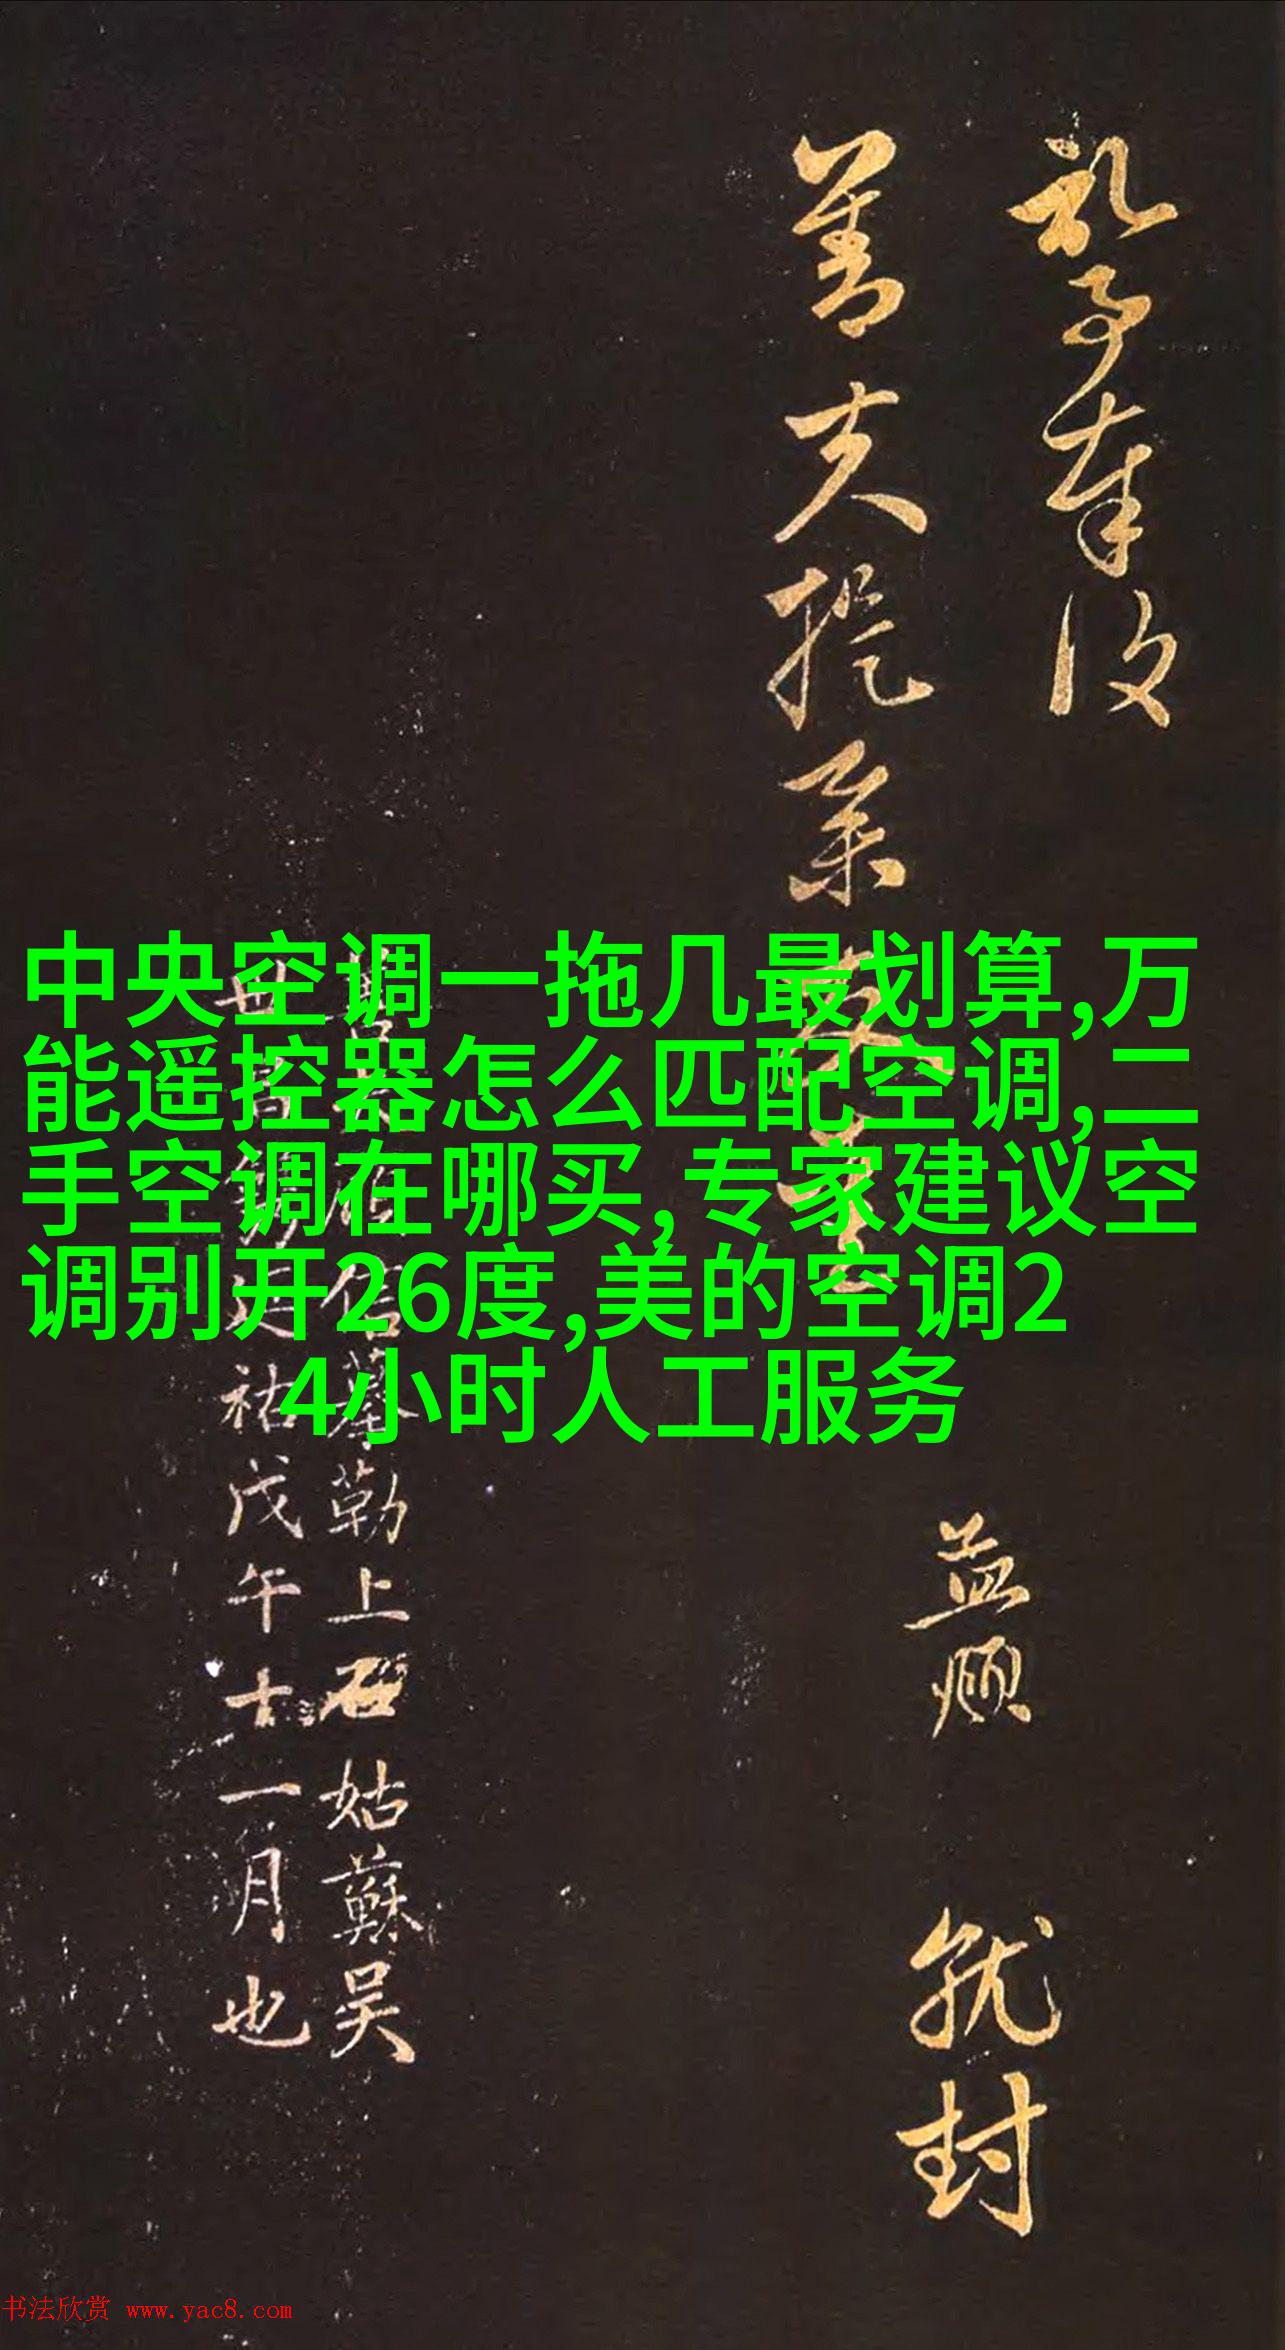 礼事奉復
善夫提舉
中央空调一拖几最划算,万
能遥控器怎么匹配空调,二
手空调在哪买,专家建议空
调别开26度,美的空调2
4小时人工服务
益 顺 就封
勒上石姑蘇吴
祐戊午十一月也
书法欣赏 www.yac8.com